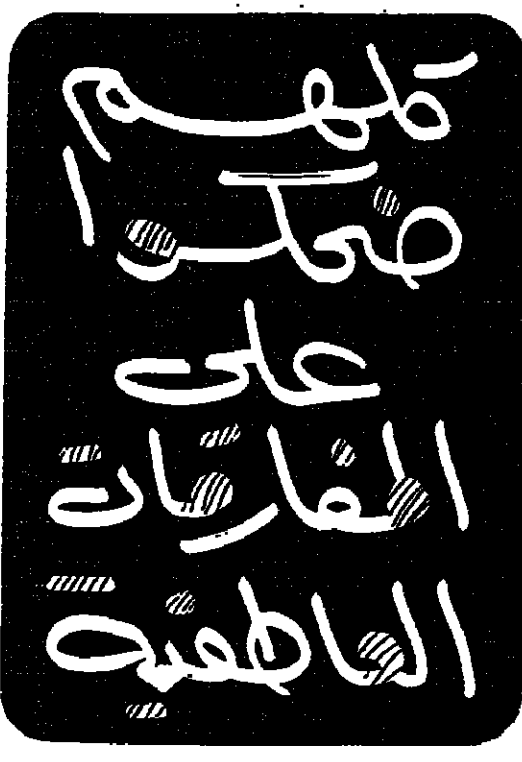 كلهم
ضحكوا
على
المفارقات
العاطفية